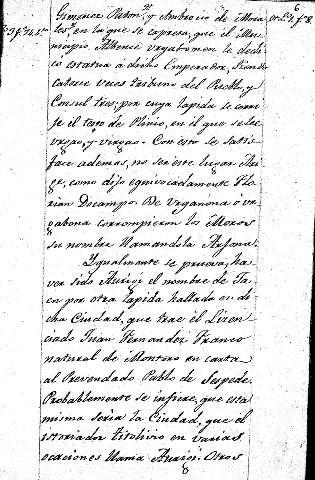 6
Gimenez Paton, y Ambrocio de Mora
les, en la que se expresa, que el Mu
nicipio Albense Urgabonen le dedi
có estatua à dicho Emperador, siendo
catorce veces tribuno del Pueblo, y
Consul tres; por cuya lapida se corri
je el testo de Plinio, en el que se lee
vrgao, y virgao. Con esto se satis
face ademas, no ser este lugar Aur
gi, como dijo equivocadamente Flo
rian Docampo. De Urgavona ó vr
gabona corrompieron los Moros
su nombre llamandola Arjona.
Ygualmente se prueva, ha
ver sido Aurigi el nombre de Ja
en por otra lapida hallada en di
cha Ciudad, que trae el Licen
ciado Juan Fernandez Franco
natural de Montoro en carta
al Prevendado Pablo de Sespede.
Probablemente se infiere, que esta
misma seria la Ciudad, que el
istoriador titolivio en varias
ocaciones llama Auringi. Otros